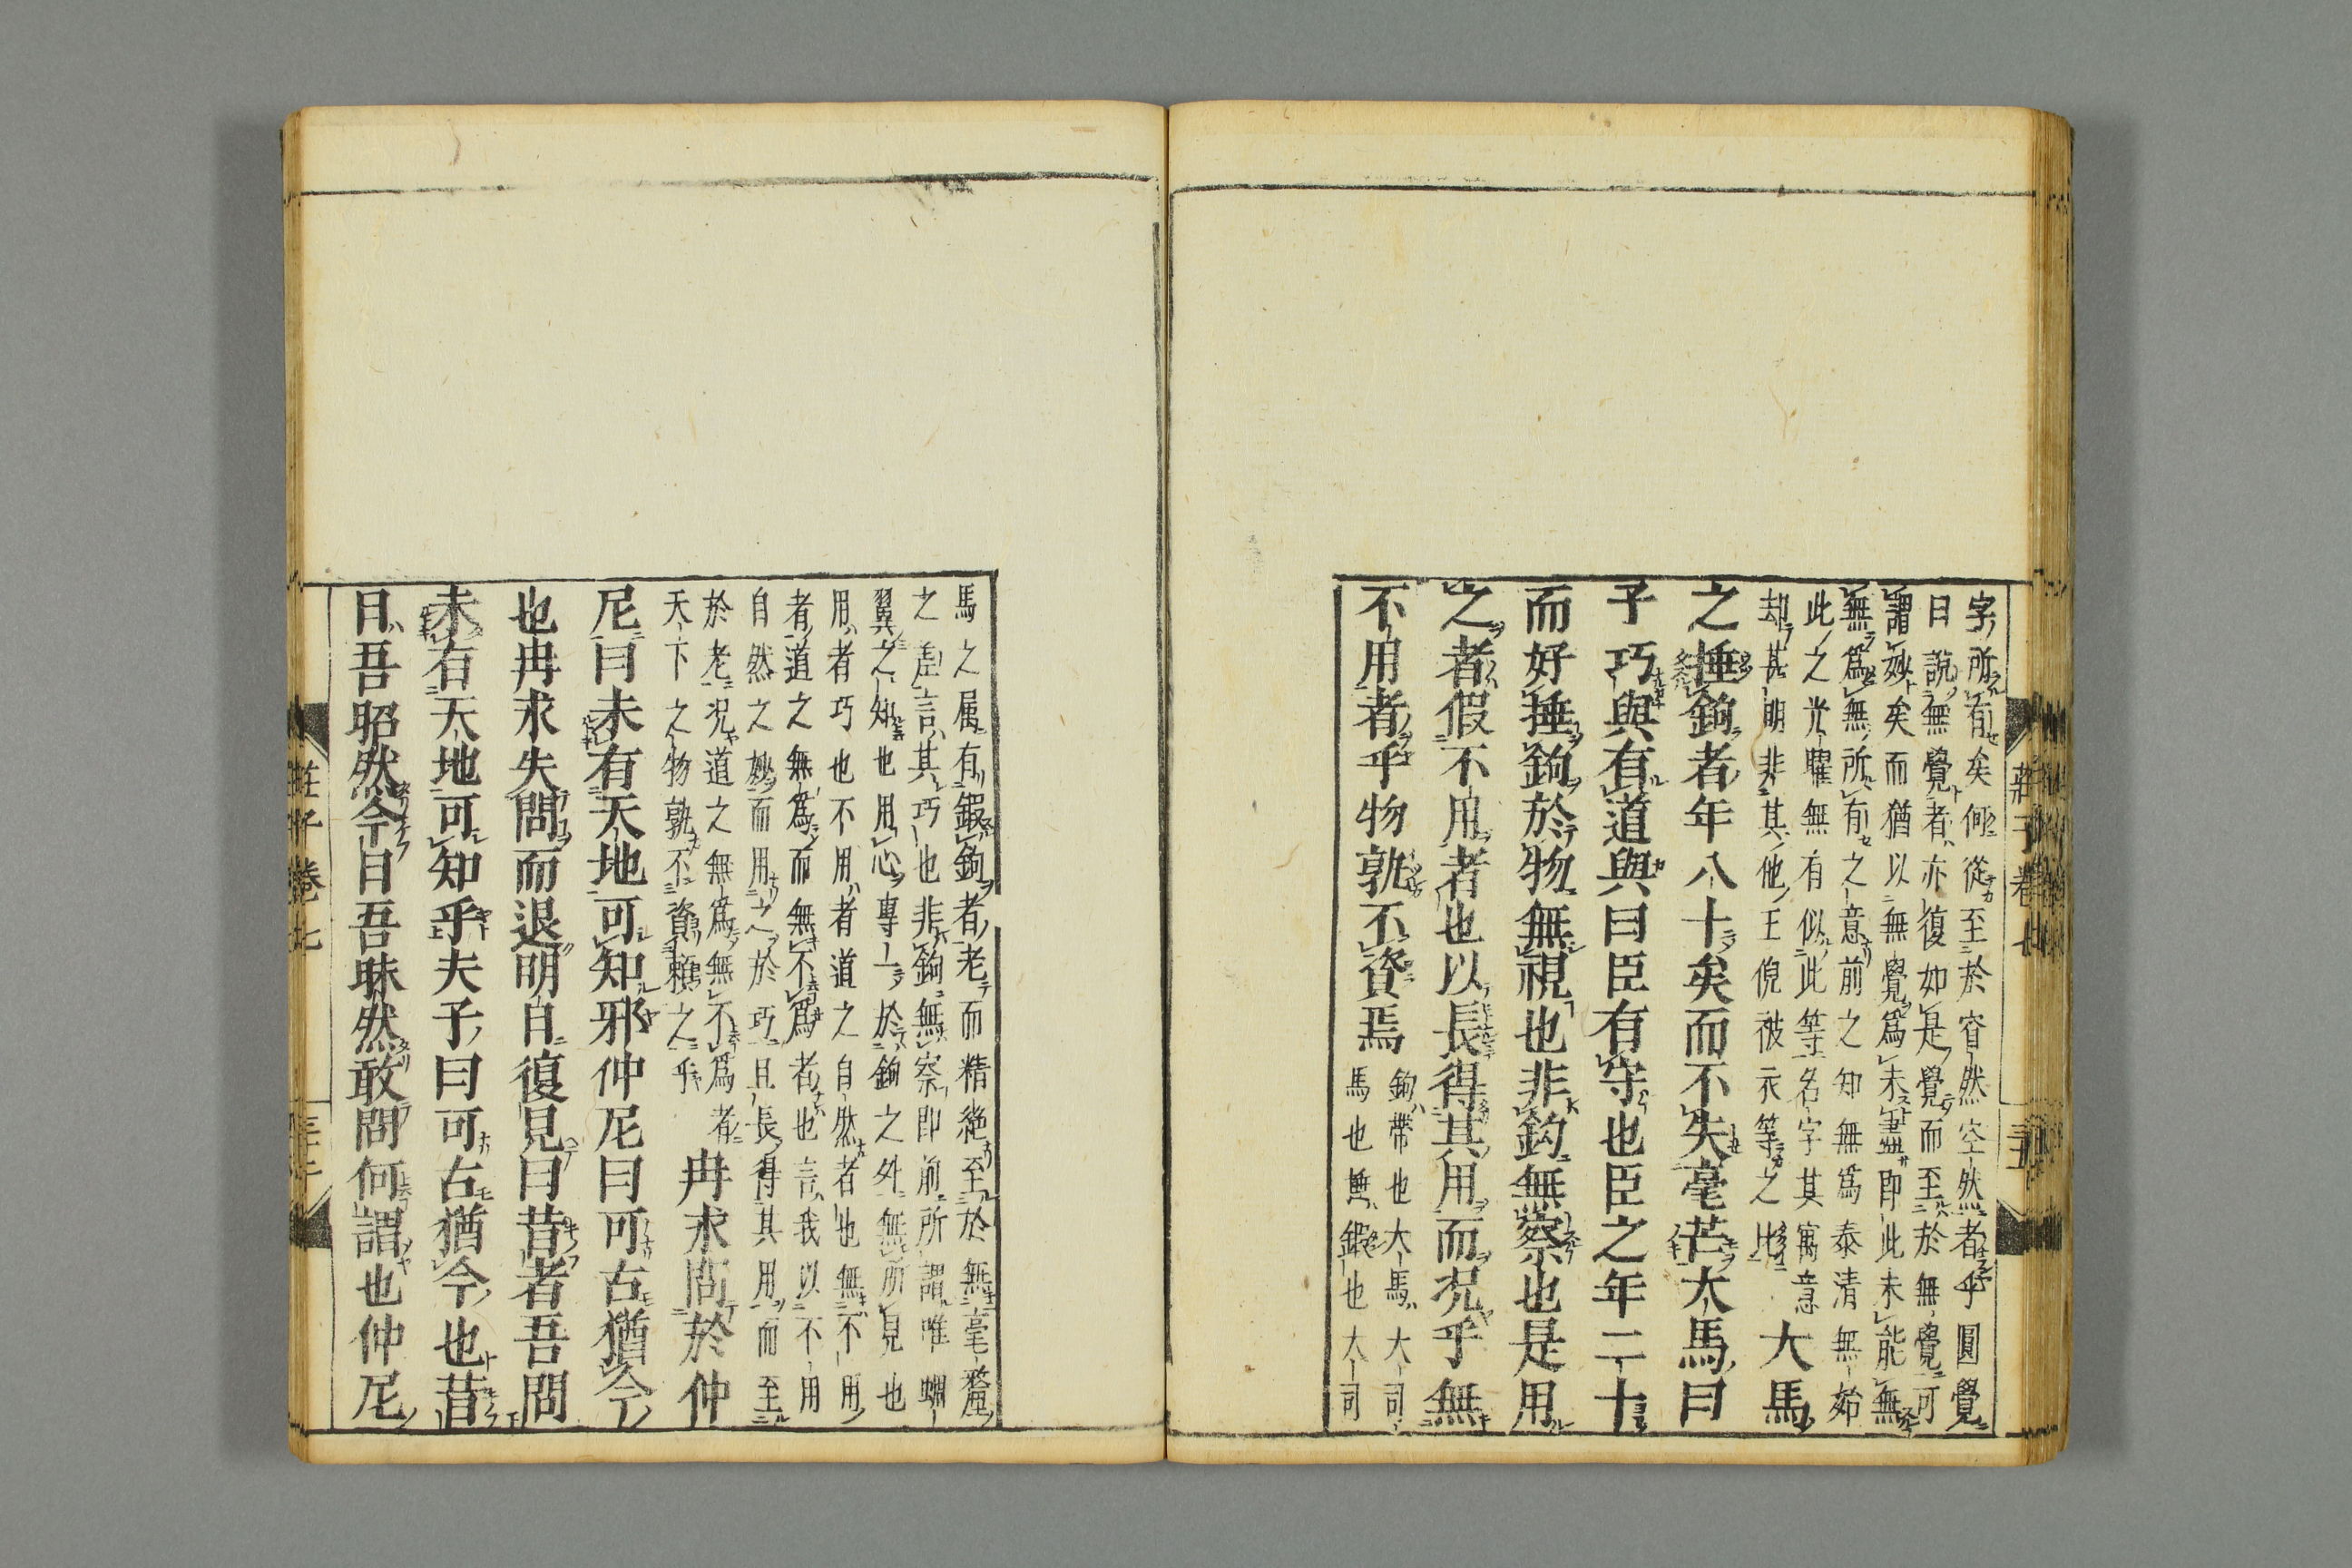 字所有矣何從至於窅然空然者乎圓覺
曰說無覺者亦復如是覺而至於無覺可
謂妙矣而猶以無覺爲未盡卽此未能無
無爲無所有之意前之知無爲泰清無始
此之光曜無有似此等名字其寓意
却甚明非其他王倪被衣等之比
大馬
之捶鉤者年八十矣而不失毫芒大馬曰
子巧與有道與曰臣有守也臣之年二十
而好捶鉤於物無視也非鉤無察也是用
之者假不用者也以長得其用而況乎無
不用者乎物孰不資焉
鉤帶也大馬大司
馬也無鍜也大司
馬之属有鍜鉤者老而精絶至於無毫釐
之差言其巧也非鉤無察卽前所謂唯蜩
翼之知也用心專一於鉤之外無所見也
用者巧也不用者道之自然者也無不用
者道之無爲而無不爲者也言我以不用
自然之妙而用之於巧且長得其用而至
於老況道之無爲無不爲者
天下之物孰不資賴之乎
冉求問於仲
尼曰未有天地可知邪仲尼曰可古猶今
也冉求失問而退明日復見曰昔者吾問
未有天地可知乎夫子曰可古猶今也昔
日吾昭然今日吾昧然敢問何謂也仲尼
莊子卷七
莊子卷七